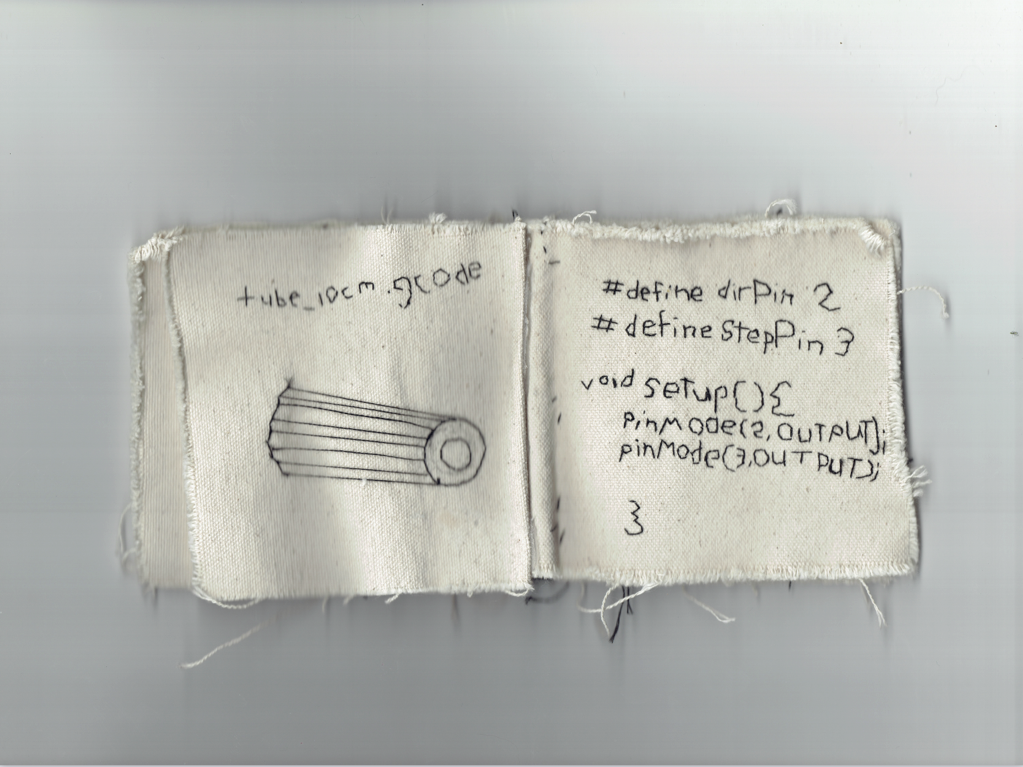 tube_10cm.gcode
#define dirPin 2
#define stepPin 3
void setup(){
pinMode(2,OUTPUT);
pinMode(3,OUTPUT);
}